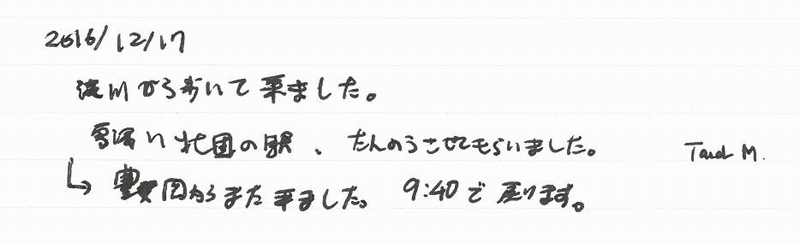 2016/12/17
淀川から歩いて来ました。
雪深い北国の駅、たんのうさせてもらいました。
↳ 豊岡からまた来ました。 9:40で戻ります。
M.